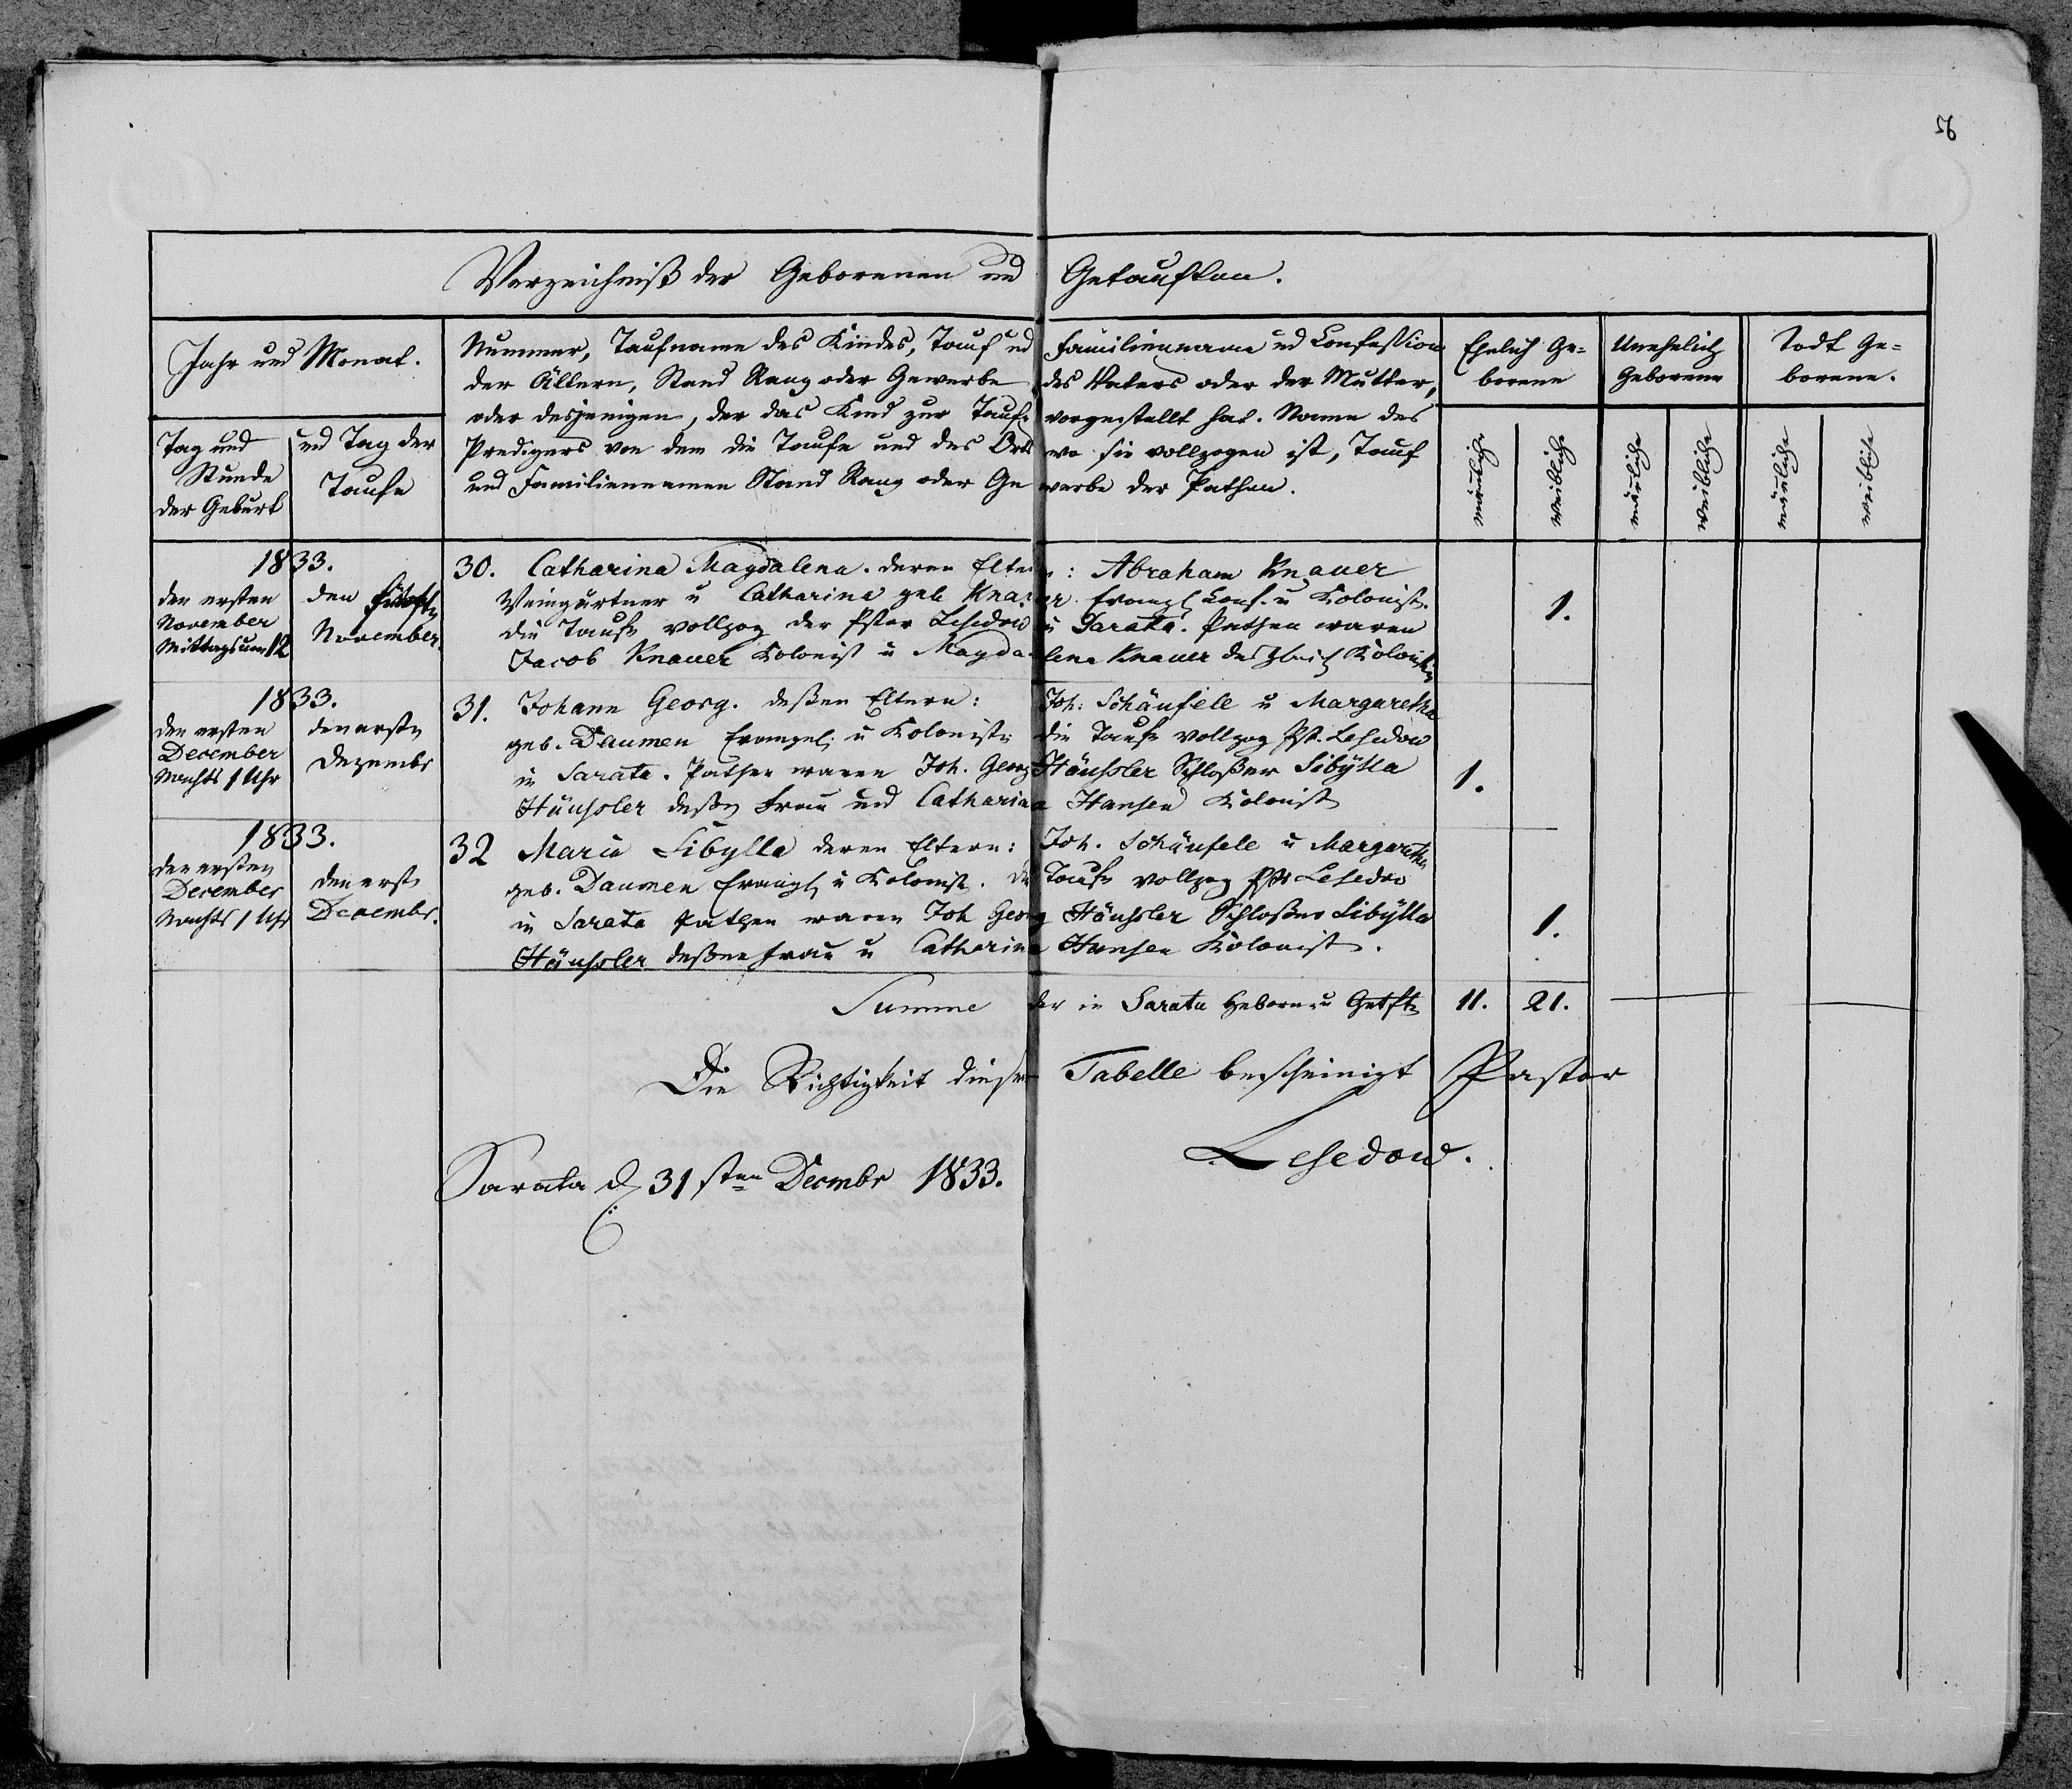 56
Verzeichniß der Geborenen und Getauften.
Jahr und Monat.
Tag und Stunde der Geburt
und Tag der Taufe
Nummer, Taufname des Kindes, Tauf und Familienname und Confession
der Ältern, Stand Rang oder Gewerbe des Vaters oder der Mutter,
oder desjenigen, der das Kind zur Taufe vorgestellt hat. Name des
Predigers von dem die Taufe und des Orts wo sie vollzogen ist, Tauf
und Familiennamen Stand Rang oder Gewerbe der Pathen.
Ehelich Ge=
borene
Unehelich
Geborene
Todt Ge=
borene.
männliche
weibliche
männliche
weibliche
männliche
weibliche
1833.
den ersten
November
Mittags um 12
den
November.
30. Catharina Magdalena. deren Eltern: Abraham Knauer
Weingärtner u Catharina geb Knauer Evangl Conf. u Kolonist.
die Taufe vollzog der Pstor Lesedow in Sarata. Pathen waren
Jacob Knauer Kolonist u Magdalena Knauer
1.
1833.
den ersten
December
Nachts 1 Uhr
den erstn
Dezembr
31. Johann Georg. deßen Eltern: Joh: Schäufele u Margaretha
geb. Daumen Evangel. u Kolonistn die Taufe vollzog Pst. Lesedow
in Sarata. Pathen waren Joh. Georg Häußler Schloßer Sibÿlla
Häußler deßen Frau und Catharina Hansen Kolonist
1.
1833.
den ersten
December
Nachts 1 Uhr
den erstn
Decembr.
32 Maria Sibylla deren Eltern: Joh. Schäufele u Margaretha
geb. Daumen Evangl u Kolonist. Die Taufe vollzog Pstr Lesedow
in Sarata Pathen waren Joh Georg Häußler Schloßer Sibÿlla
Häußler deßen Frau u Catharina Hansen Kolonist.
1.
Summe der in Sarata Geborn. u Getftn 11. 21.
Die Richtigkeit dieser Tabelle bescheinigt Pastor
Lesedow.
Sarata d 31sten Decmbr 1833.